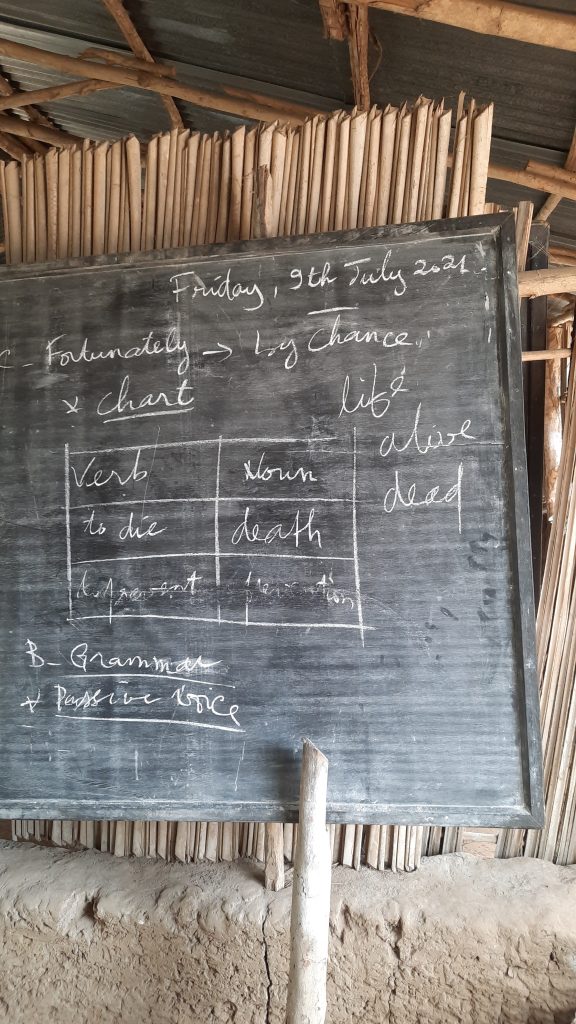 Friday, 9th July 2021
c - Fortunately → by Chance.
* Chart
life
alive
dead
Verb Noun
to die death
to prevent prevention
B - Grammar
* Passive Voice